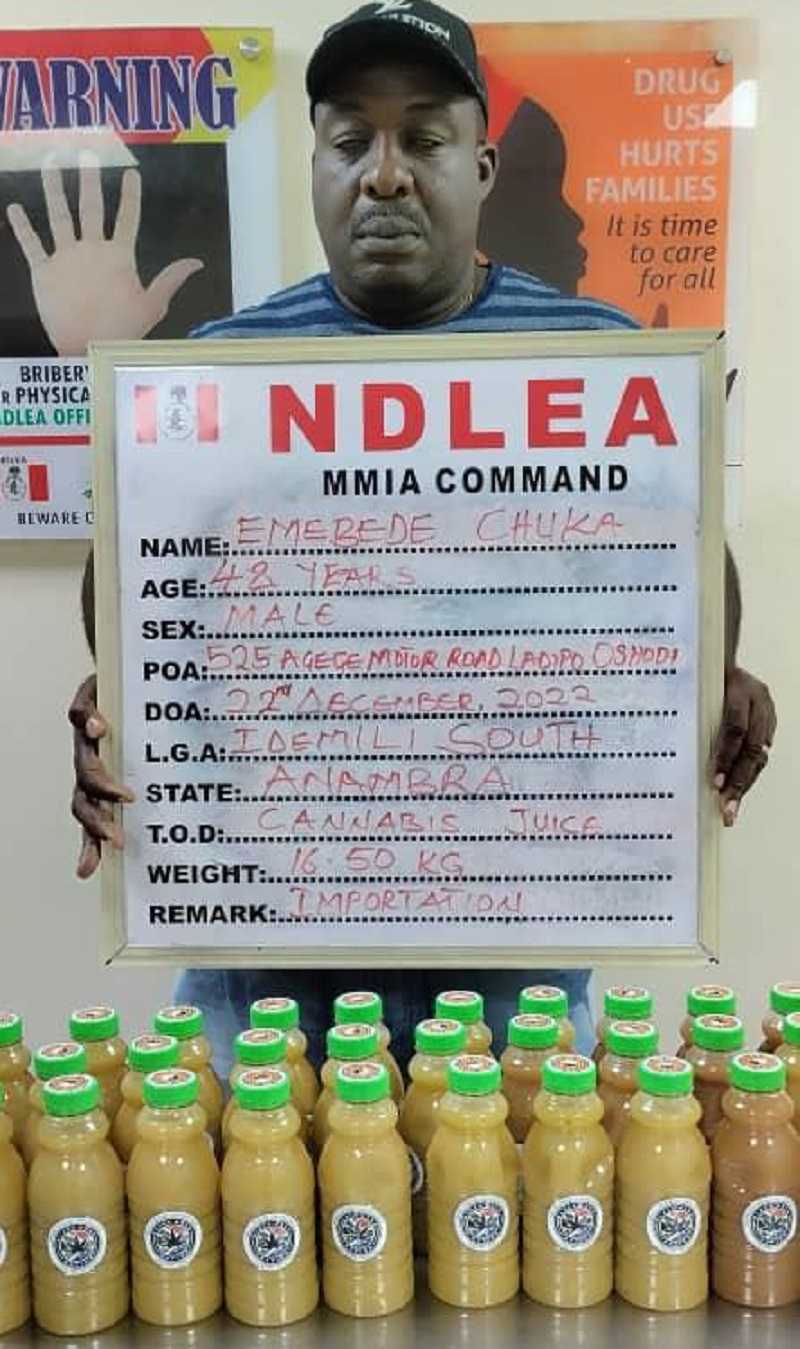 WARNING
BRIBERY
R PHYSICA
DLEA OFFI
BEWARE
DRUG
USE
HURTS
FAMILIES
It is time
to care
for all
NDLEA
MMIA COMMAND
NAME: EMEBEDE CHUKA
AGE: 48 YEARS
SEX: MALE
POA: 525 AGEGE MOTOR ROAD LADIPO OSHODI
DOA: 22nd DECEMBER, 2022
L.G.A: IDEMILI SOUTH
STATE: ANAMBRA
T.O.D: CANNABIS JUICE
WEIGHT: 16.50 KG
REMARK: IMPORTATION